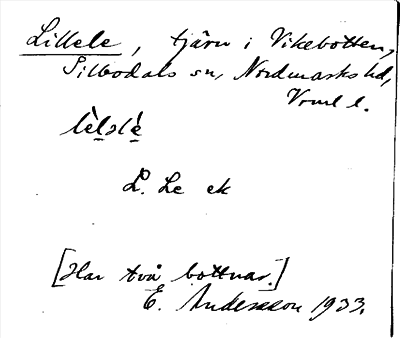 Lillele, tjärn i Vikebotten,
Silbodals sn, Nordmarks hd,
Vrml l.
lèlslé
L. Le ek
[Har två bottnar.]
E. Andersson 1933.